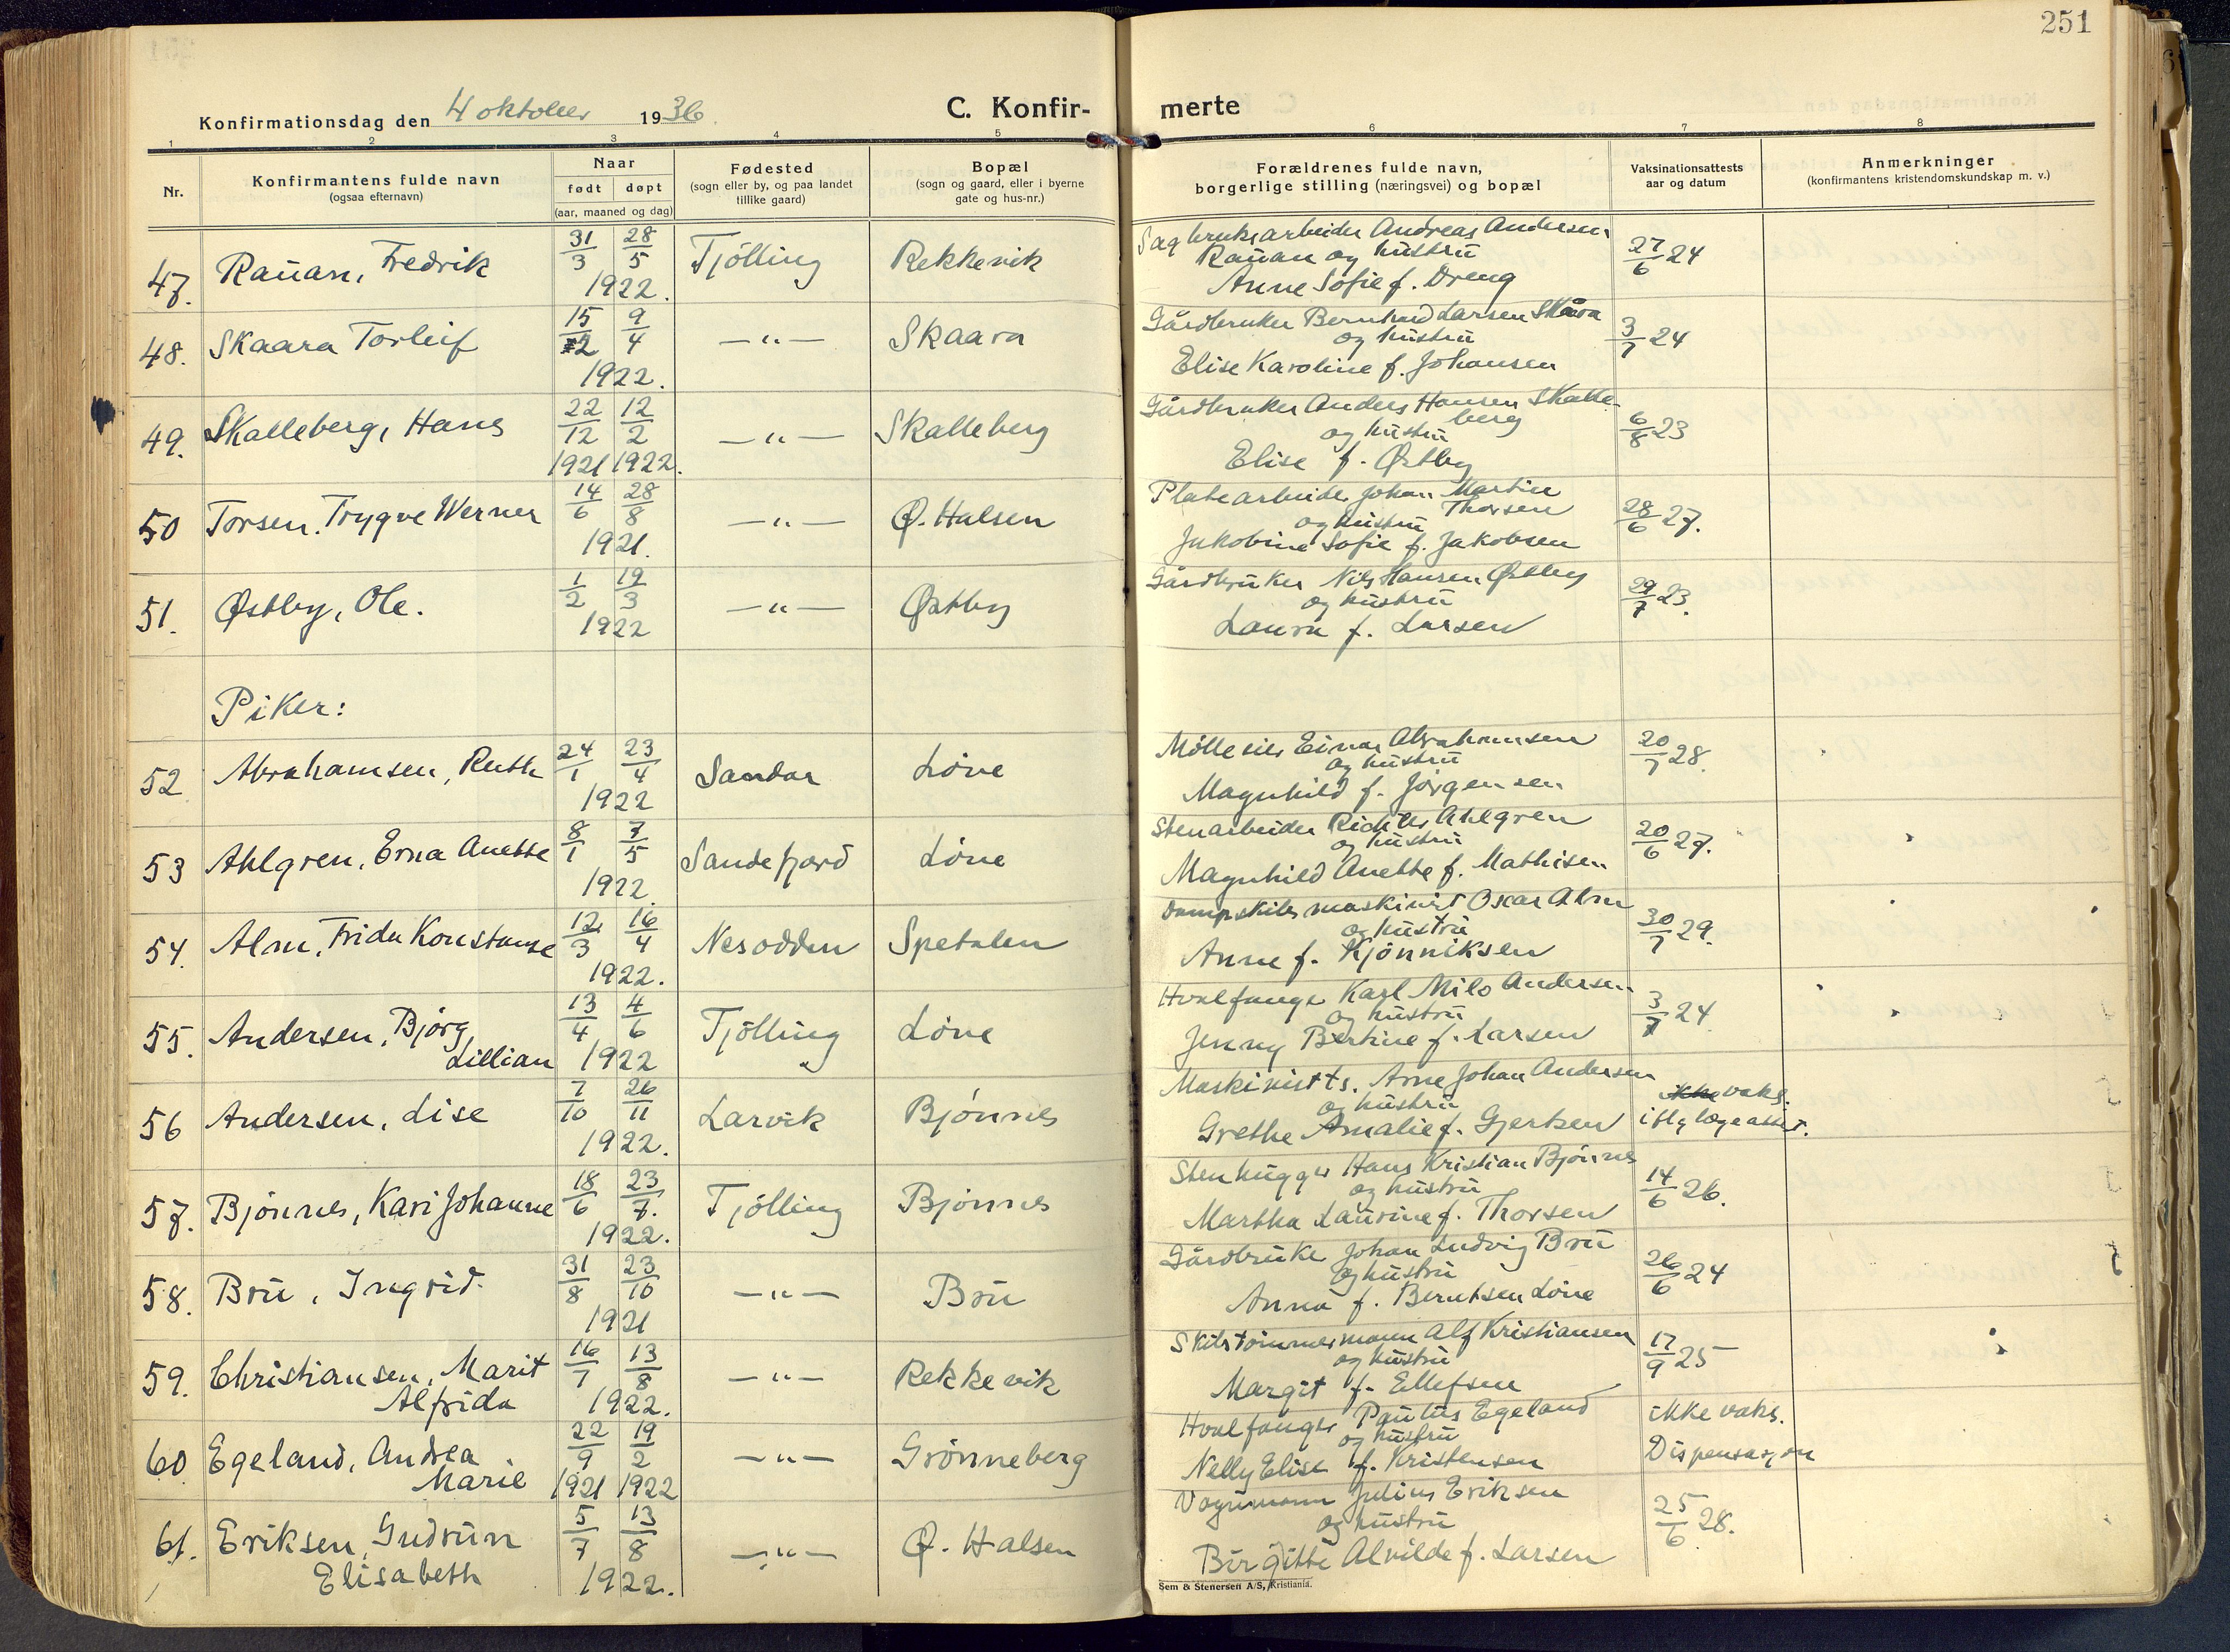 251
Konfirmationsdag den 4 oktober 1936.
C. Konfir-
merte
1 2 3 4 5 6 7 8
Nr.
Konfirmantens fulde navn
(ogsaa efternavn)
Naar
født døpt
(aar, maaned og dag)
Fødested
(sogn eller by, og paa landet
tillike gaard)
Bopæl
(sogn og gaard, eller i byerne
gate og hus-nr.)
Forældrenes fulde navn,
borgerlige stilling (næringsvei) og bopæl
Vaksinationsattests
aar og datum
Anmerkninger
(konfirmantens kristendomskundskap m. v.)
47. Rauan, Fredrik 31/3 28/5 1922. Tjölling Rekkevik
Sagbruksarbeider Andreas Andersen
Rauan og hustru
Anne Sofie f. Dreng
27/6 24
48. Skaara Torleif 15/2 9/4 1922. —"— Skaara
Gårdbruker Bernhard Larsen Skåra
og hustru
Elise Karoline f. Johansen
3/7 24
49. Skalleberg, Hans 22/12 1921 12/2 1922. —"— Skalleberg
Gårdbruker Anders Hansen Skalle-
berg
og hustru
Elise f. Østby
6/8 23
50 Torsen, Trygve Werner 14/6 28/8 1921. —"— Ø. Halsen
Platearbeider Johan Martin
Thorsen
og hustru
Jakobine Sofie f. Jakobsen
28/6 27.
51. Østby, Ole. 1/2 19/3 1922 —"— Østby
Gårdbruker Nils Hansen Østby
og hustru
Laura f. Larsen
29/7 23.
Piker:
52 Abrahamsen, Ruth 24/1 23/4 1922 Sandar Löve
Mölleeier Einar Abrahamsen
og hustru
Magnhild f. Jörgensen
20/7 28.
53 Ahlgren, Erna Anette 8/1 7/5 1922. Sandefjord Löve
Stenarbeider Richter Ahlgren
og hustru
Magnhild Anette f. Mathisen
20/6 27.
54. Alm, Frida Konstanse 12/3 16/4 1922. Nesodden Spetalen
Dampskibsmaskinist Oscar Alm
og hustru
Anne f. Kjönniksen
30/7 29.
55. Andersen, Bjørg
Lillian 13/4 4/6 1922 Tjölling Löve
Hvalfanger Karl Milo Andersen
og hustru
Jenny Bertine f. Larsen
3/7 24
56 Andersen, Lise 7/10 26/11 1922. Larvik Bjønnes
Maskinist ts. Arne Johan Andersen
og hustru
Grethe Amalie f. Gjertsen
ikke vaks.
iflg lægeattest.
57. Bjønnes, Kari Johanne 18/6 23/7. 1922. Tjölling Bjønnes
Stenhugger Hans Kristian Bjønnes
og hustru
Martha Laurine f. Thorsen
14/6 26.
58. Bru, Ingrid. 31/8 23/10 1921 —"— Bru
Gårdbruke Johan Ludvig Bru
og hustru
Anna f. Berntsen Löve
26/6 24
59. Christiansen, Marit
Alfrida 16/7 13/8 1922. —"— Rekkevik
Skibstömmermann Alf Kristiansen
og hustru
Margit f. Ellefsen
17/9 25
60 Egeland, Andrea
Marie 22/9 1921 19/2 1922 —"— Grönneberg
Hvalfanger Paulus Egeland
og hustru
Nelly Elise f. Kristensen
ikke vaks.
Dispensasjon
61. Eriksen, Gudrun
Elisabeth 5/7 13/8 1922. —"— Ø. Halsen
Vognmann Julius Eriksen
og hustru
Birgitte Alvilde f. Larsen
25/6 28.
Sem & Stenersen A/S, Kristiania.